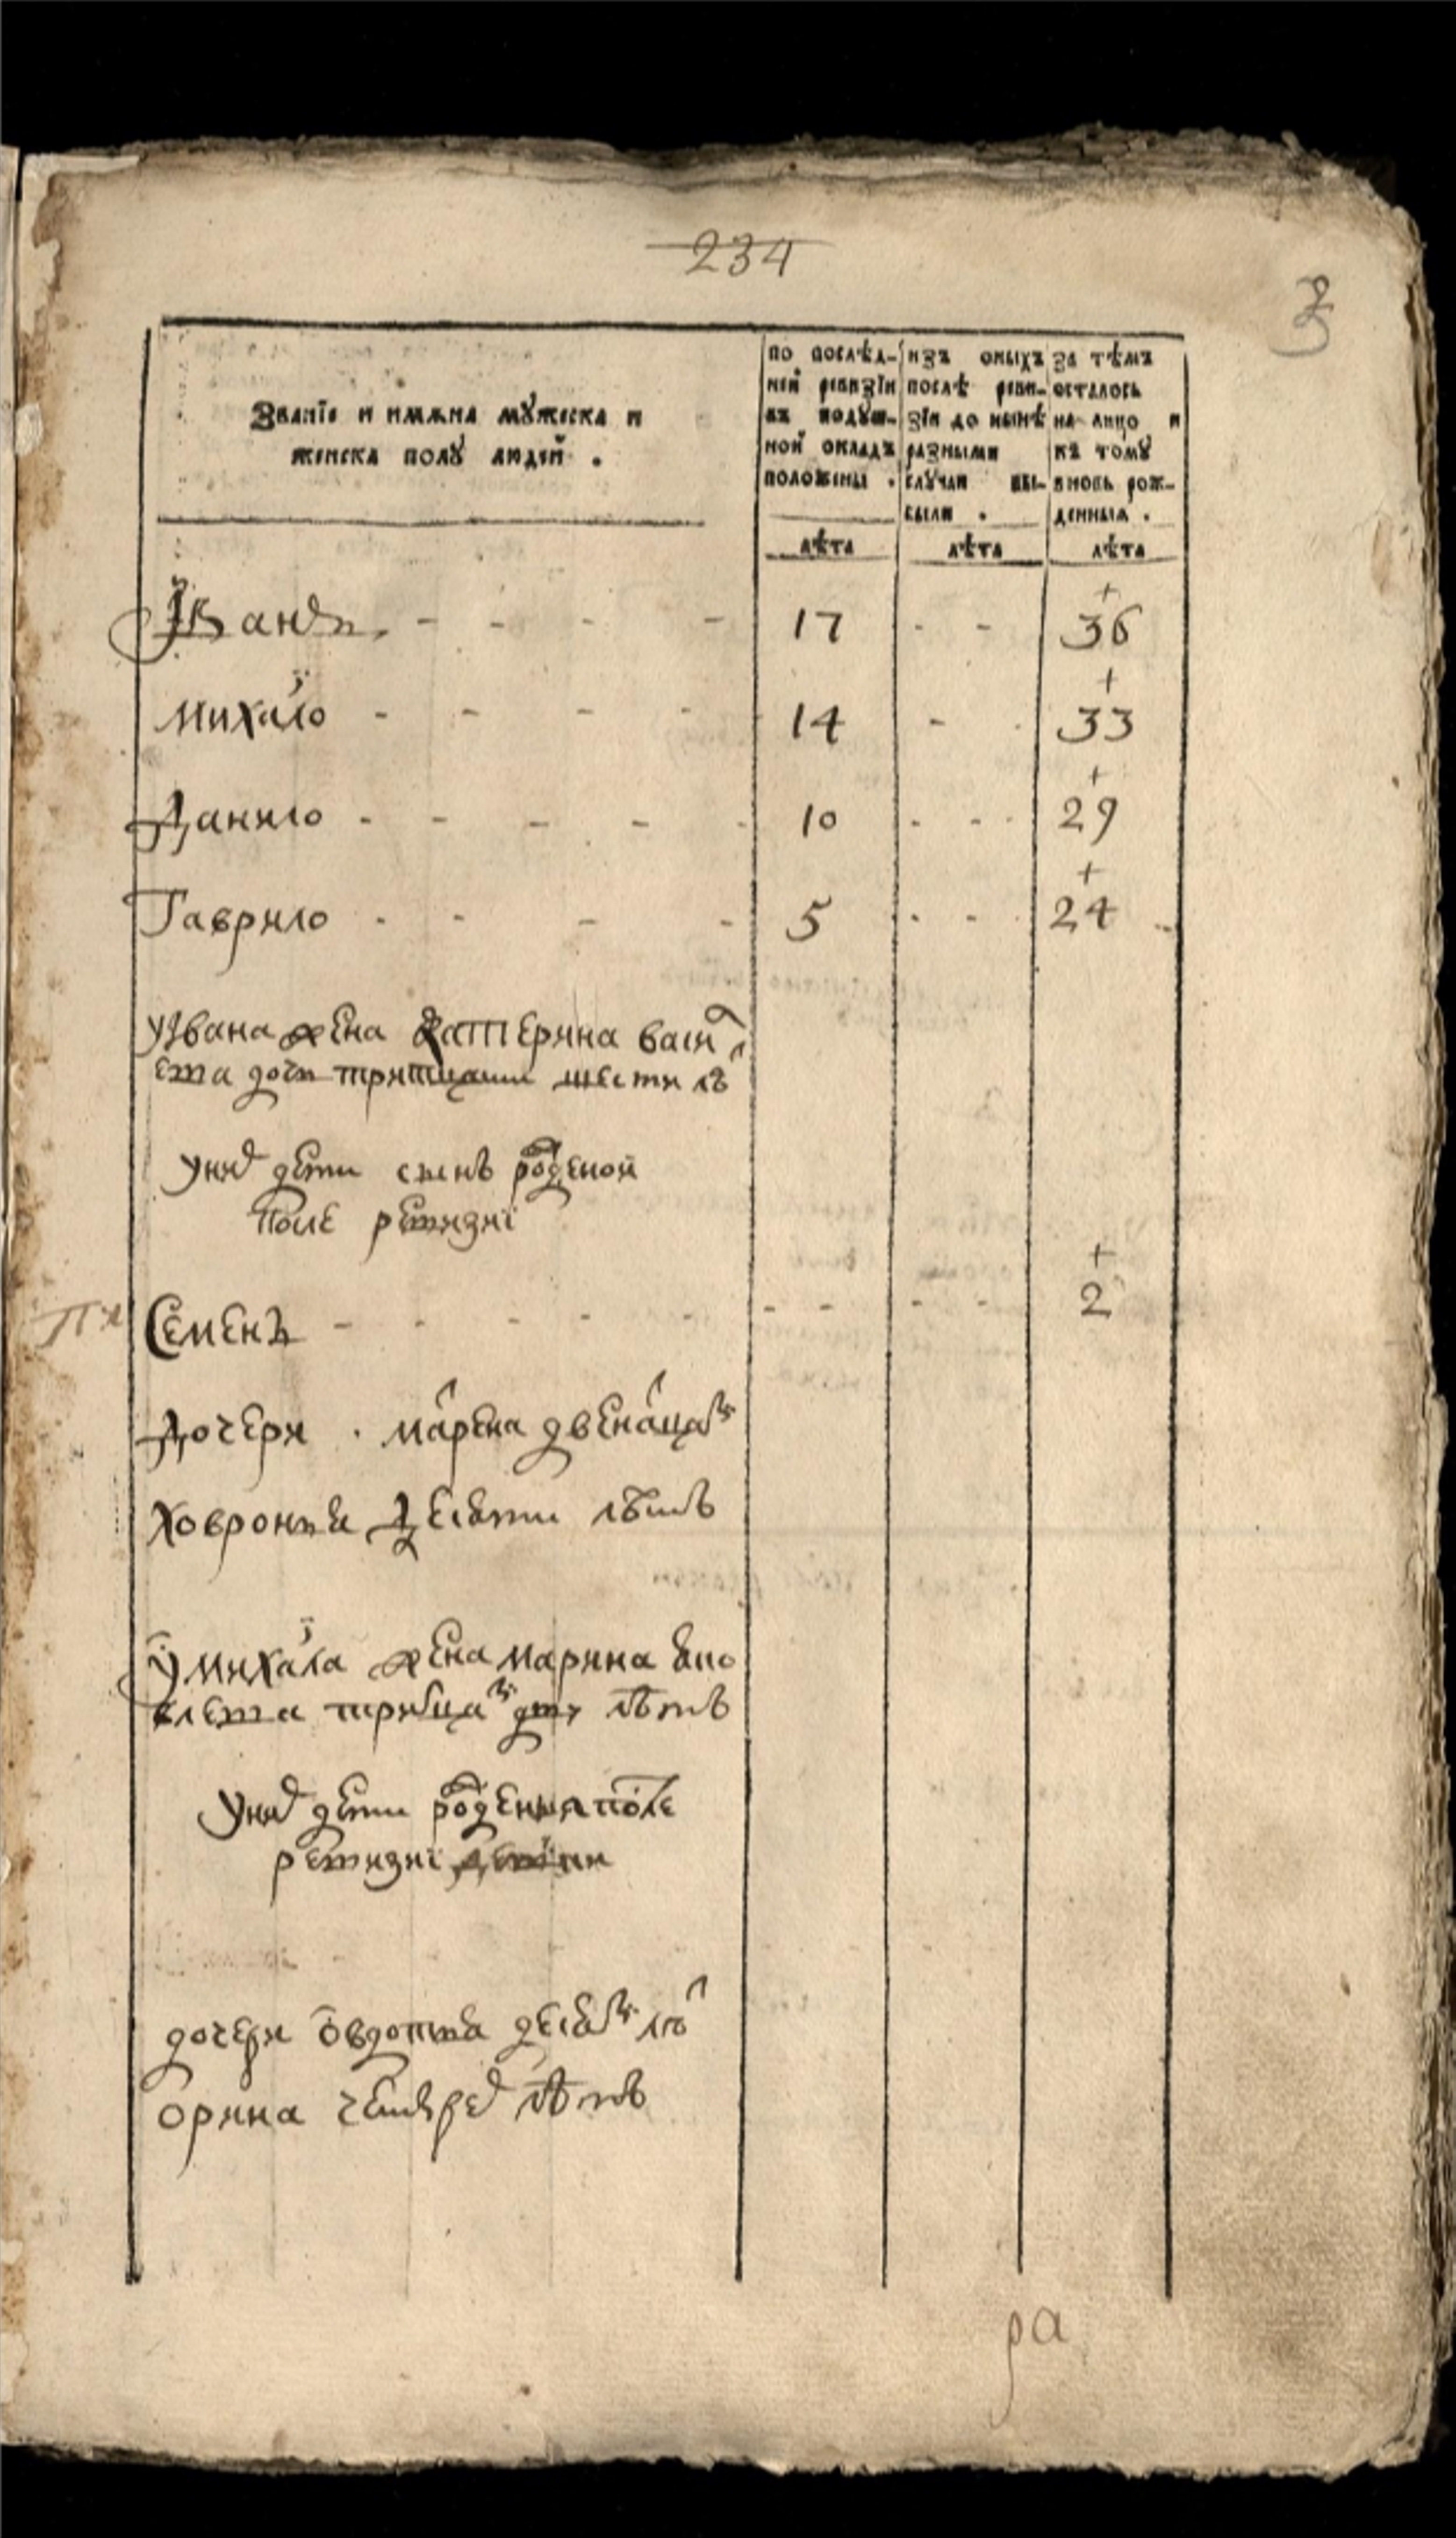 234
З
Званїе и имѧна мꙋжеска и
женска полꙋ людей .
по послѣд-
ней ревизїи
въ подꙋш-
ной окладъ
положены .
изъ оныхъ
послѣ реви-
зїи до нынѣ
разными
слꙋчаи вы-
были .
за тѣмъ
осталось
на лицо и
къ томꙋ
вновь рож-
денныя .
лѣта лѣта лѣта
Иванъ - - - - 17 - - + 36
Михайло - - - - 14 - + 33
Данило - - - - - 10 - - + 29
Гаврило - - - - 5 - - + 24
уИвана жена Катерина
дочь тритцати шести лѣ
униⷯ дѣти сынъ рожденой
после ревизиї
Семенъ - - - - - - - - - + 2
Дочери . марена двенацать
Ховронья десяти лѣтъ
У михайла жена марина
лѣтъ
униⷯ дѣти рожденыя после
ревизиї
дочери овдотья десять лѣ
орина четыреⷯ лѣтъ
ра